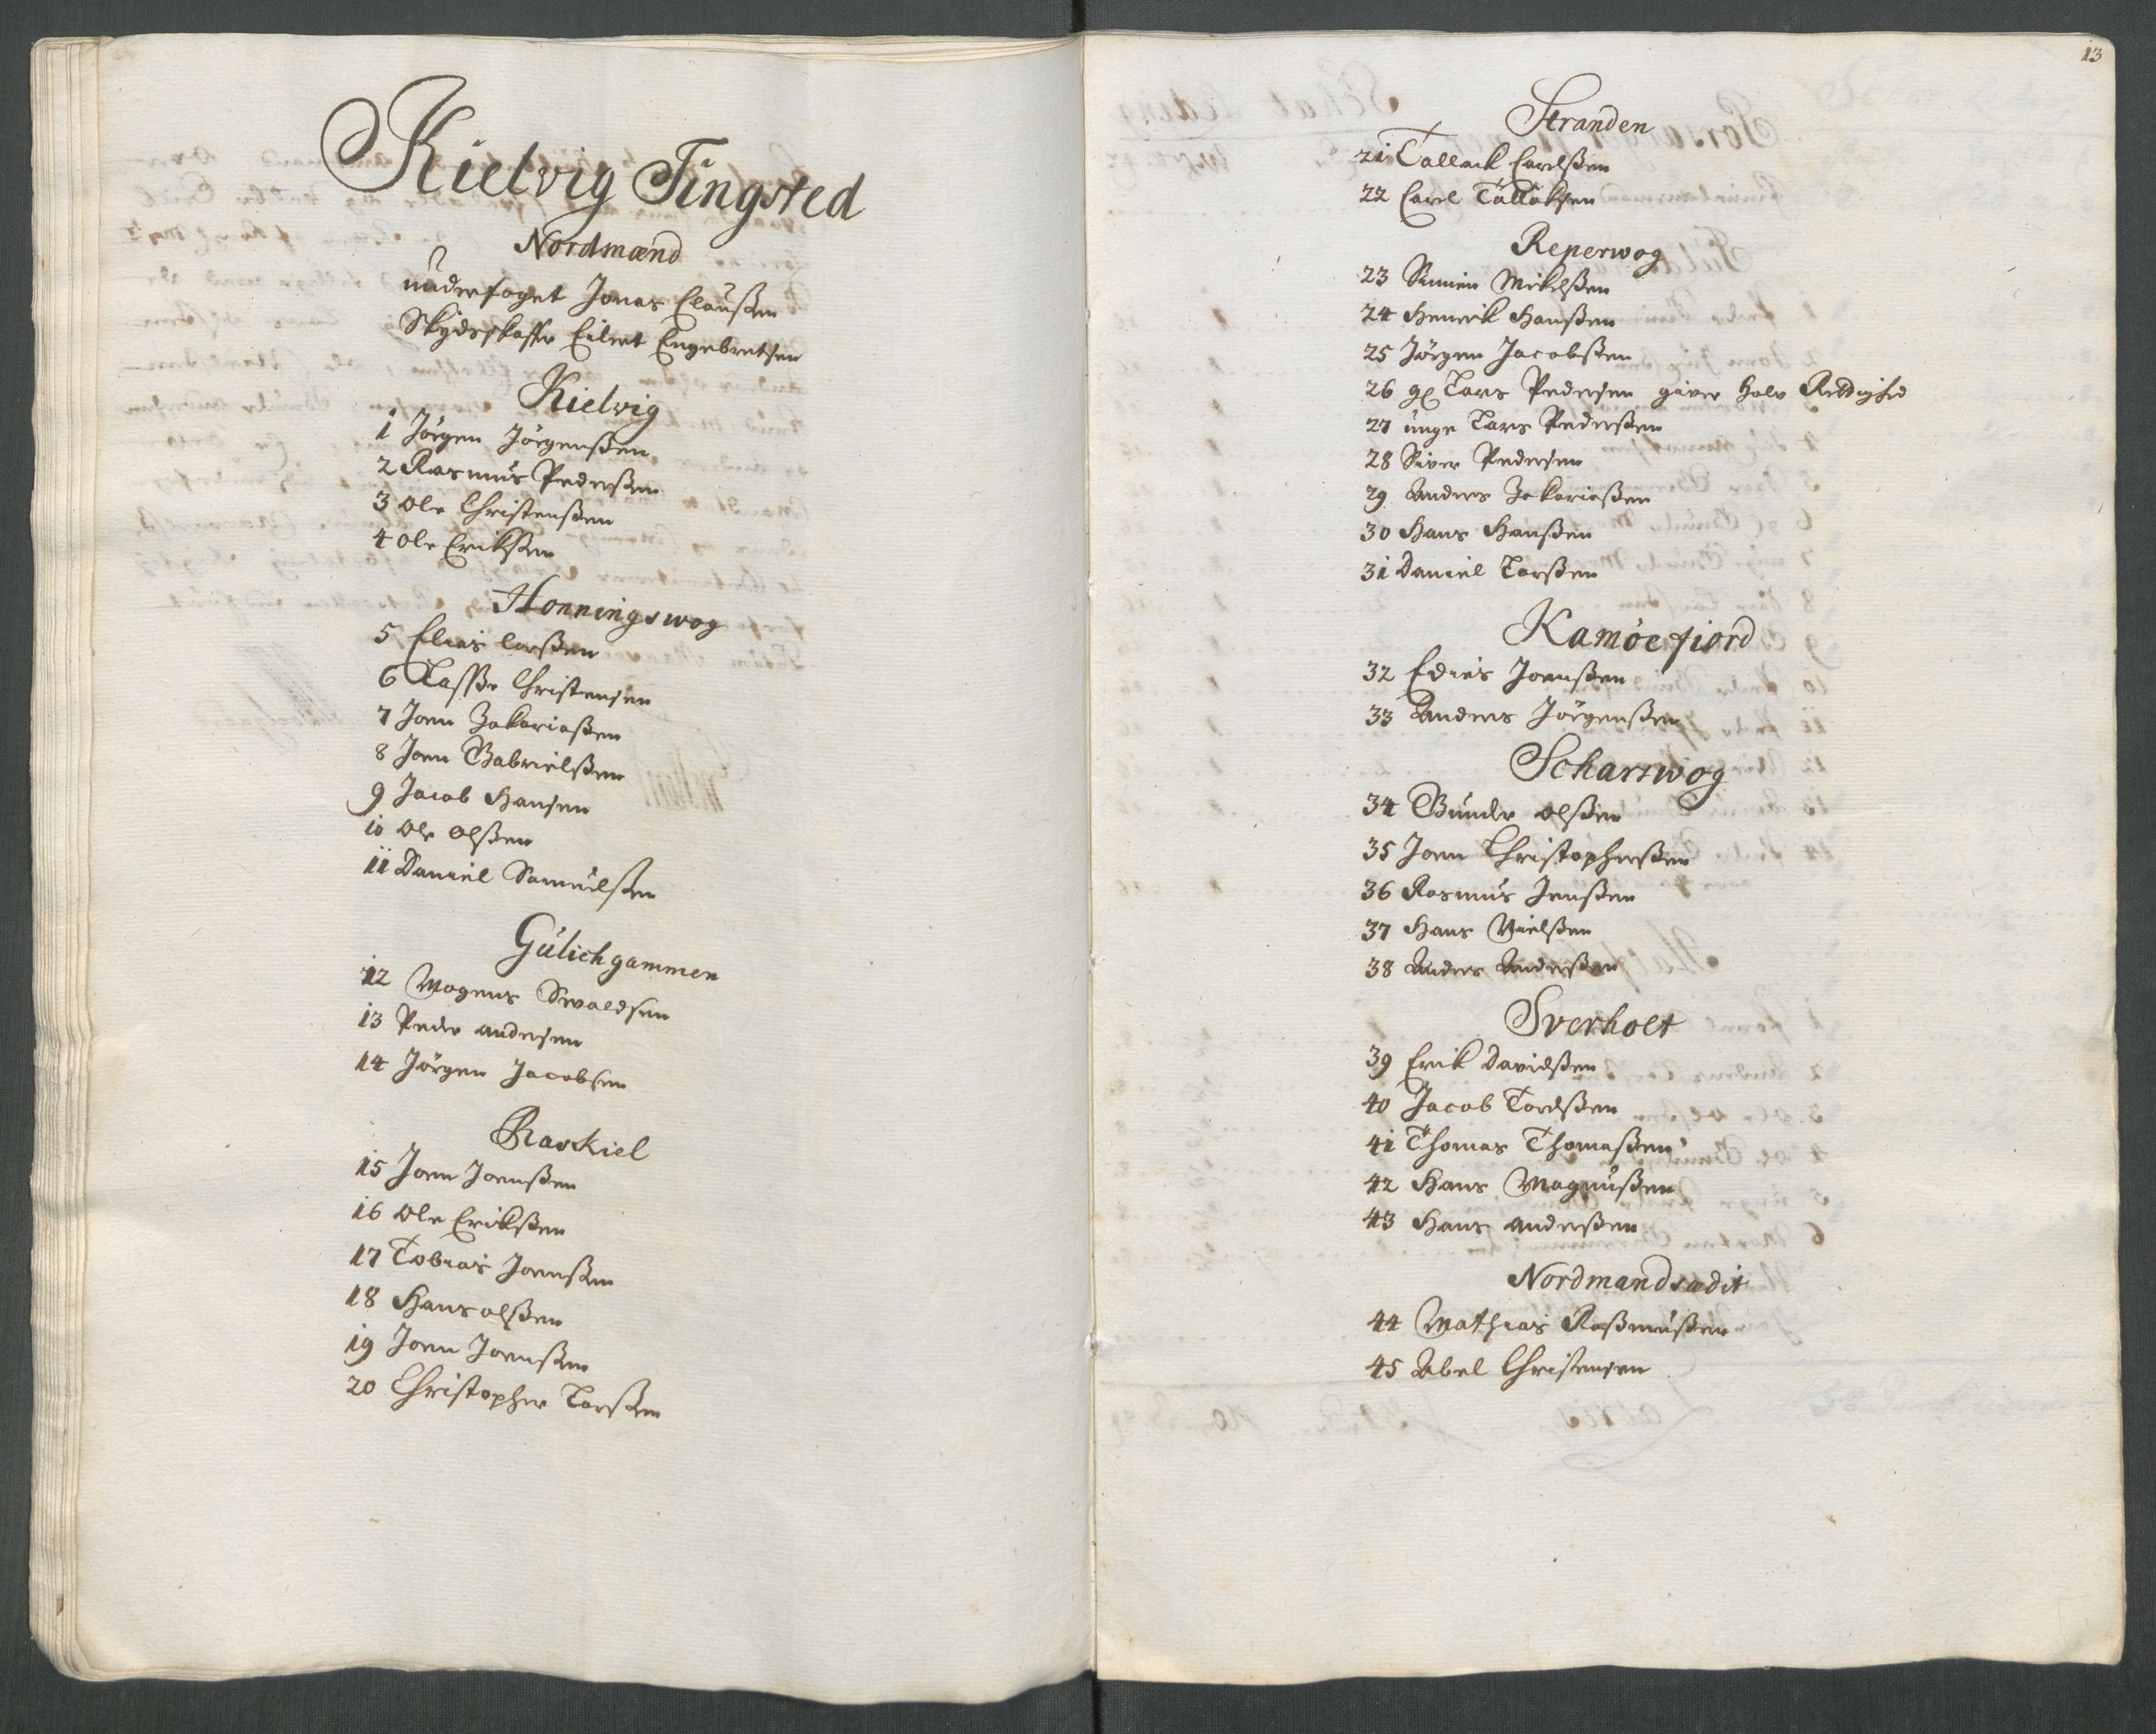 Kielvig Tingsted
Nordmænd
underfoget Jonas Claußen
Skydsskaffer Eilert Engebretsen
Kielvig
1 Jörgen Jörgenßen
2 Rasmus Pederßen
3 Ole Christenßen
4 Ole Erikßen
Honningswog
5 Elias Larßen
6 Lasse Christensen
7 Joen Zakariaßen
8 Joen Gabrielßen
9 Jacob Hansen
10 Ole Olßen
11 Daniel Samuelßen
Gulichgammen
12 Mogens
13 Peder andersen
14 Jörgen Jacobsen
15 Joen Joenßen
16 Ole Erikßen
17 Tobias Joenßen
18 Hans olßen
19 Joen Joenßen
20 Christopher Larßen
13
Stranden
21 Tallack Carelßen
22 Carel Tallaksen
Reperwog
23 Simen Mikelßen
24 Henrik Hanßen
25 Jörgen Jacobßen
26 gl Lars Pedersen giver halv Rettighed
27 unge Lars Pederßen
28 Siver Pedersen
29 Anders Zakariaßen
30 Hans Hanßen
31 Daniel Larßen
Kamöefiord
32 Edies Joenßen
33 Anders Jörgenßen
Scharswog
34 Gunder olßen
35 Joen Christopherßen
36 Rasmus Jenßen
37 Hans Nielßen
38 Anders Anderßen
Sverholt
39 Erik Davidßen
40 Jacob Tordßen
41 Thomas Thomaßen
42 Hans Magnußen
43 Hans anderßen
Nordmandsædit
44 Mathias Raßmußen
45 Abel Christensen